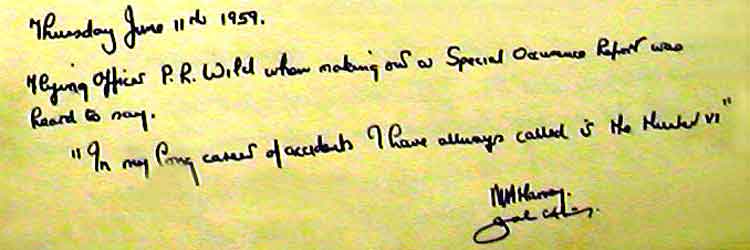 Thursday June 11th 1959.
Flying Officer P. R. Wild when making out a Special Occurance Report was
heard to say.
"In my long career of accidents I have allways called is the Hunter VI"